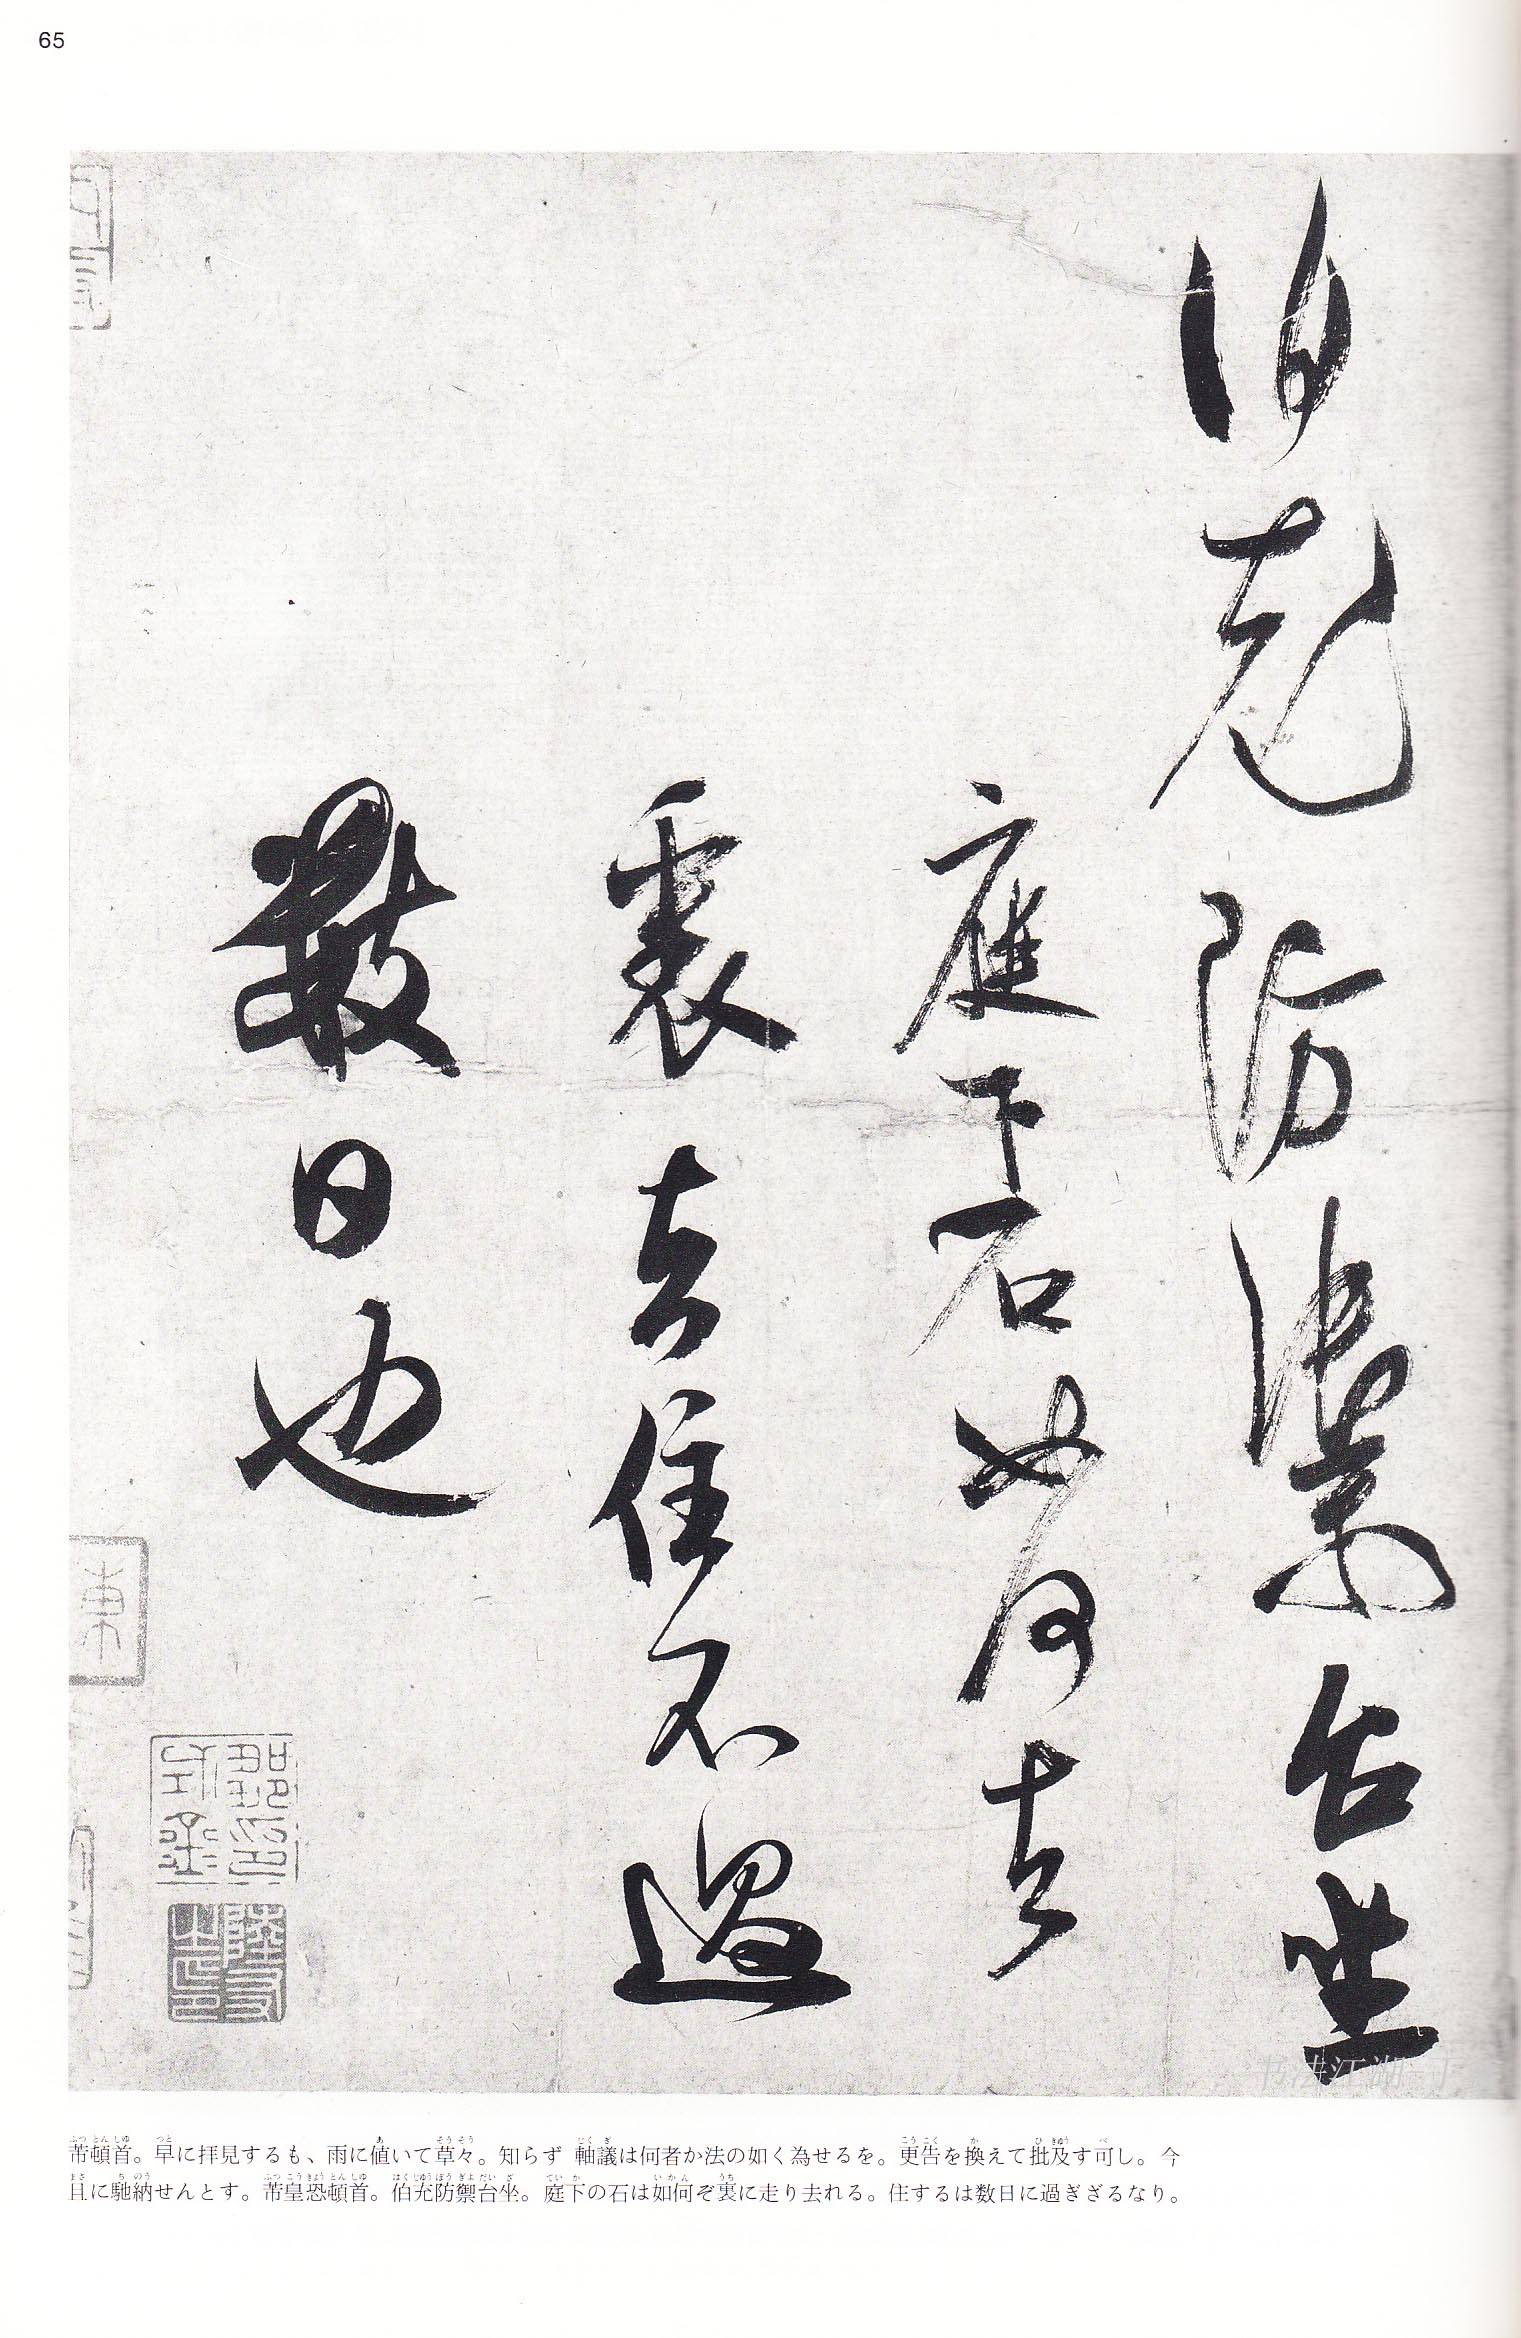 65
伯充防禦台坐
庭下石如何去
裏去住不過
數日也
陸友之印
书法江湖
芾頓首。早に拝見するも、雨に値いて草々。知らず 軸議は何者か法の如く為せるを。更告を換えて批及す可し。今
且に馳納せんとす。芾皇恐頓首。伯充防禦台坐。庭下の石は如何ぞ裏に走り去れる。住するは数日に過ぎざるなり。